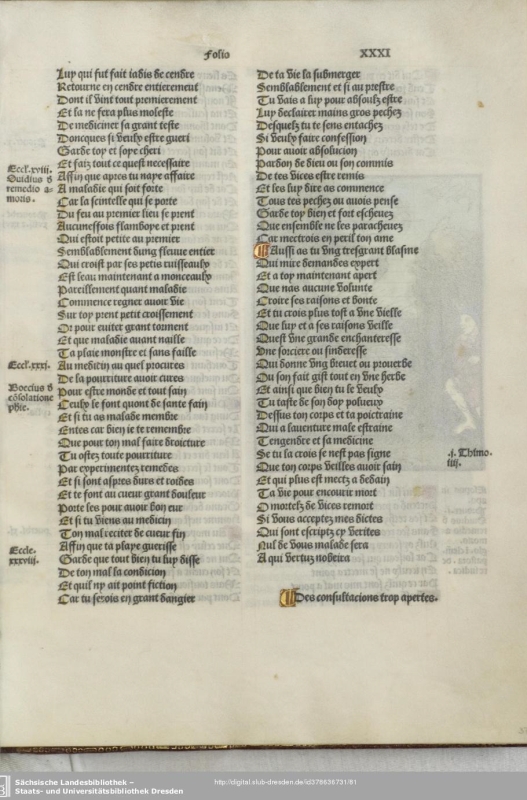 Folio XXXI
Luy qui fut fait iadis de cendre
Retourne en cendre entierement
Dont il vint tout premierement
Et la ne fera plus moleste
De mediciner sa grant teste
Doncques si veulx estre gueri
Garde toy et soye cheri
Et faiz tout ce quest necessaire
Affin que apres tu naye affaire
A maladie qui soit forte
Car la scintelle qui se porte
Du feu au premier lieu se prent
Aucunessois flamboye et prent
Qui estoit petite au premier
Semblablement dung fleuue entier
Qui croist par ses petis ruisseaulx
Est leau maintenant a monceaulx
Pareillement quant maladie
Commence regner auoir vie
Sur toy prent petit croissement
Or pour euiter grant torment
Et que maladie auant naille
Ta plaie monstre et sans faille
Au medicin au quel procures
De la pourriture auoir cures
Pour estre monde et tout sain
Ceulx le font quont de sante fain
Et si tu as malade membre
Entes car bien ie te remembre
Que pour ton mal faire droicture
Tu ostez toute pourriture
Par experimentez remedes
Et si sont aspres durs et roides
Et te font au cueur grant douleur
Porte les pour auoir bon eur
Et si tu viens au medicin
Ton mal reciter de cueur fin
Affin que ta playe guerisse
Garde que tout bien tu luy disse
De ton mal la condicion
Et quil ny ait point fiction
Car tu serois en grant dangier
Eccl.xviii.
Ouidius d
remedio a-
moris.
Eccl.xxxj.
Boecius d
cõsolatione
phie.
Eccle.
xxxviij.
De ta vie la submerger
Semblablement et si au prestre
Tu vais a luy pour absoulz estre
Luy declairer mains gros pechez
Desquelz tu te sens entachez
Si veulx faire confession
Pour auoir absolucion
Pardon de dieu ou son commis
De tes vices estre remis
Et les luy dire as commence
Tous tes pechez ou auois pense
Garde toy bien et fort escheuez
Que ensemble ne les paracheuez
Car mectrois en peril ton ame
Aussi as tu vng tresgrant blasme
Qui mire demandes expert
Et a toy maintenant apert
Que nas aucune volunte
Croire ses raisons et bonte
Et tu crois plus tost a vne vielle
Que luy et a ses raisons veille
Quest vne grande enchanteresse
Vne sorciere ou sinderesse
Qui donne vng breuet ou prouerbe
Ou son fait gist tout en vne herbe
Et ainsi que bien tu le veulx
Tu taste de son doy poliueux
Dessus ton corps et ta poictraine
Qui a lauenture male estraine
Tengendre et sa medicine
Se tu la crois ie nest pas signe
Que ton corps veilles auoir sain
Et qui plus est mectz a dedain
Ta vie pour encourir mort
O mortelz de vices remort
Si vous acceptez mes dictes
Qui sont escriptz cy verites
Nul de vous malade sera
A qui vertuz nobeira
.j. Thimo.
iiij.
Des consultacions trop apertes.
Sächsische Landesbibliothek –
Staats- und Universitätsbibliothek Dresden
http://digital.slub-dresden.de/id378638731/81